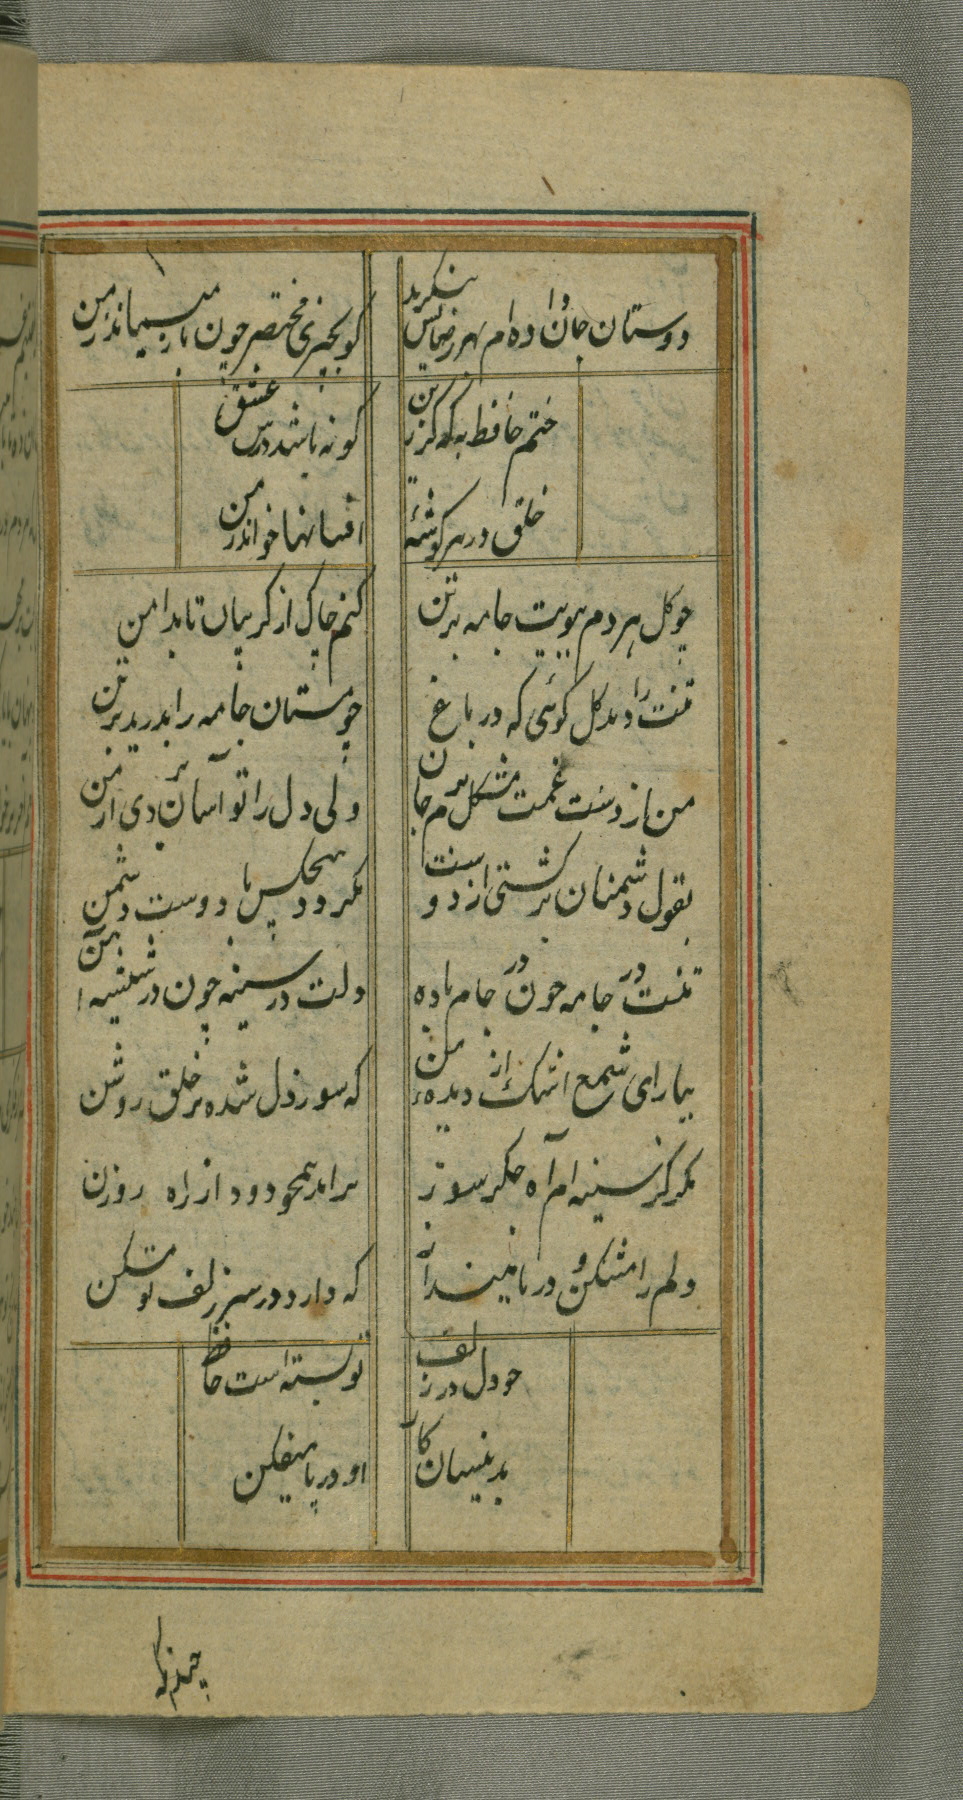 دوستان جان داده ام بهر دهانش بنگرید
کو بچیزی مختصر چون باز میماند ز من
ختم حافظ به که کر زین
کونه باشد درس عشق
خلق در هر کوشهٔ
افسانها خواند ز من
چو کل هر دم ببویت جامه بر تن
کنم چاک از کریبان تا بدامن
تنت را دید کل کوئی که در باغ
چو مستان جامه را بدرید بر تن
من از دست غمت مشکل برم جان
ولی دل را تو آسان بردی از من
بقول دشمنان برکشتی از دوست
نکردد هیچکس با دوست دشمن
تنت در جامه چون در جام باده
دلت در سینه چون در شیشه آهن
ببار ای شمع اشک از دیدهٔ من
که سوز دل شده بر خلق روشن
مکن کز سینه ام آه جکر سوز
براید همچو دود از راه روزن
دلم را مشکن و در پا مینداز
که دارد در سر زلف تو مسکن
چو دل در زلف
تو بسته است حافظ
بدینسان کار
او در پا میفکن
چندانکه